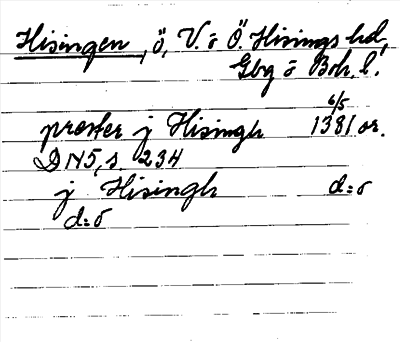 Hisingen, ö, V. o Ö. Hisings hd,
Gbg o Boh. l.
6/5
prester j Hisingh 1381 or.
DN5, s. 234
j Hisingh d:o
d:o